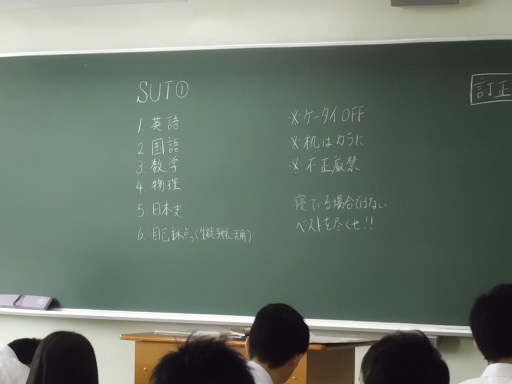 SUT①
1. 英語
2 国語
3. 数学
4. 物理
5. 日本史
6. 自己採点
※ケータイOFF
※机はカラに
※不正厳禁
寝ている場合ではない
ベストを尽くせ!!
訂正